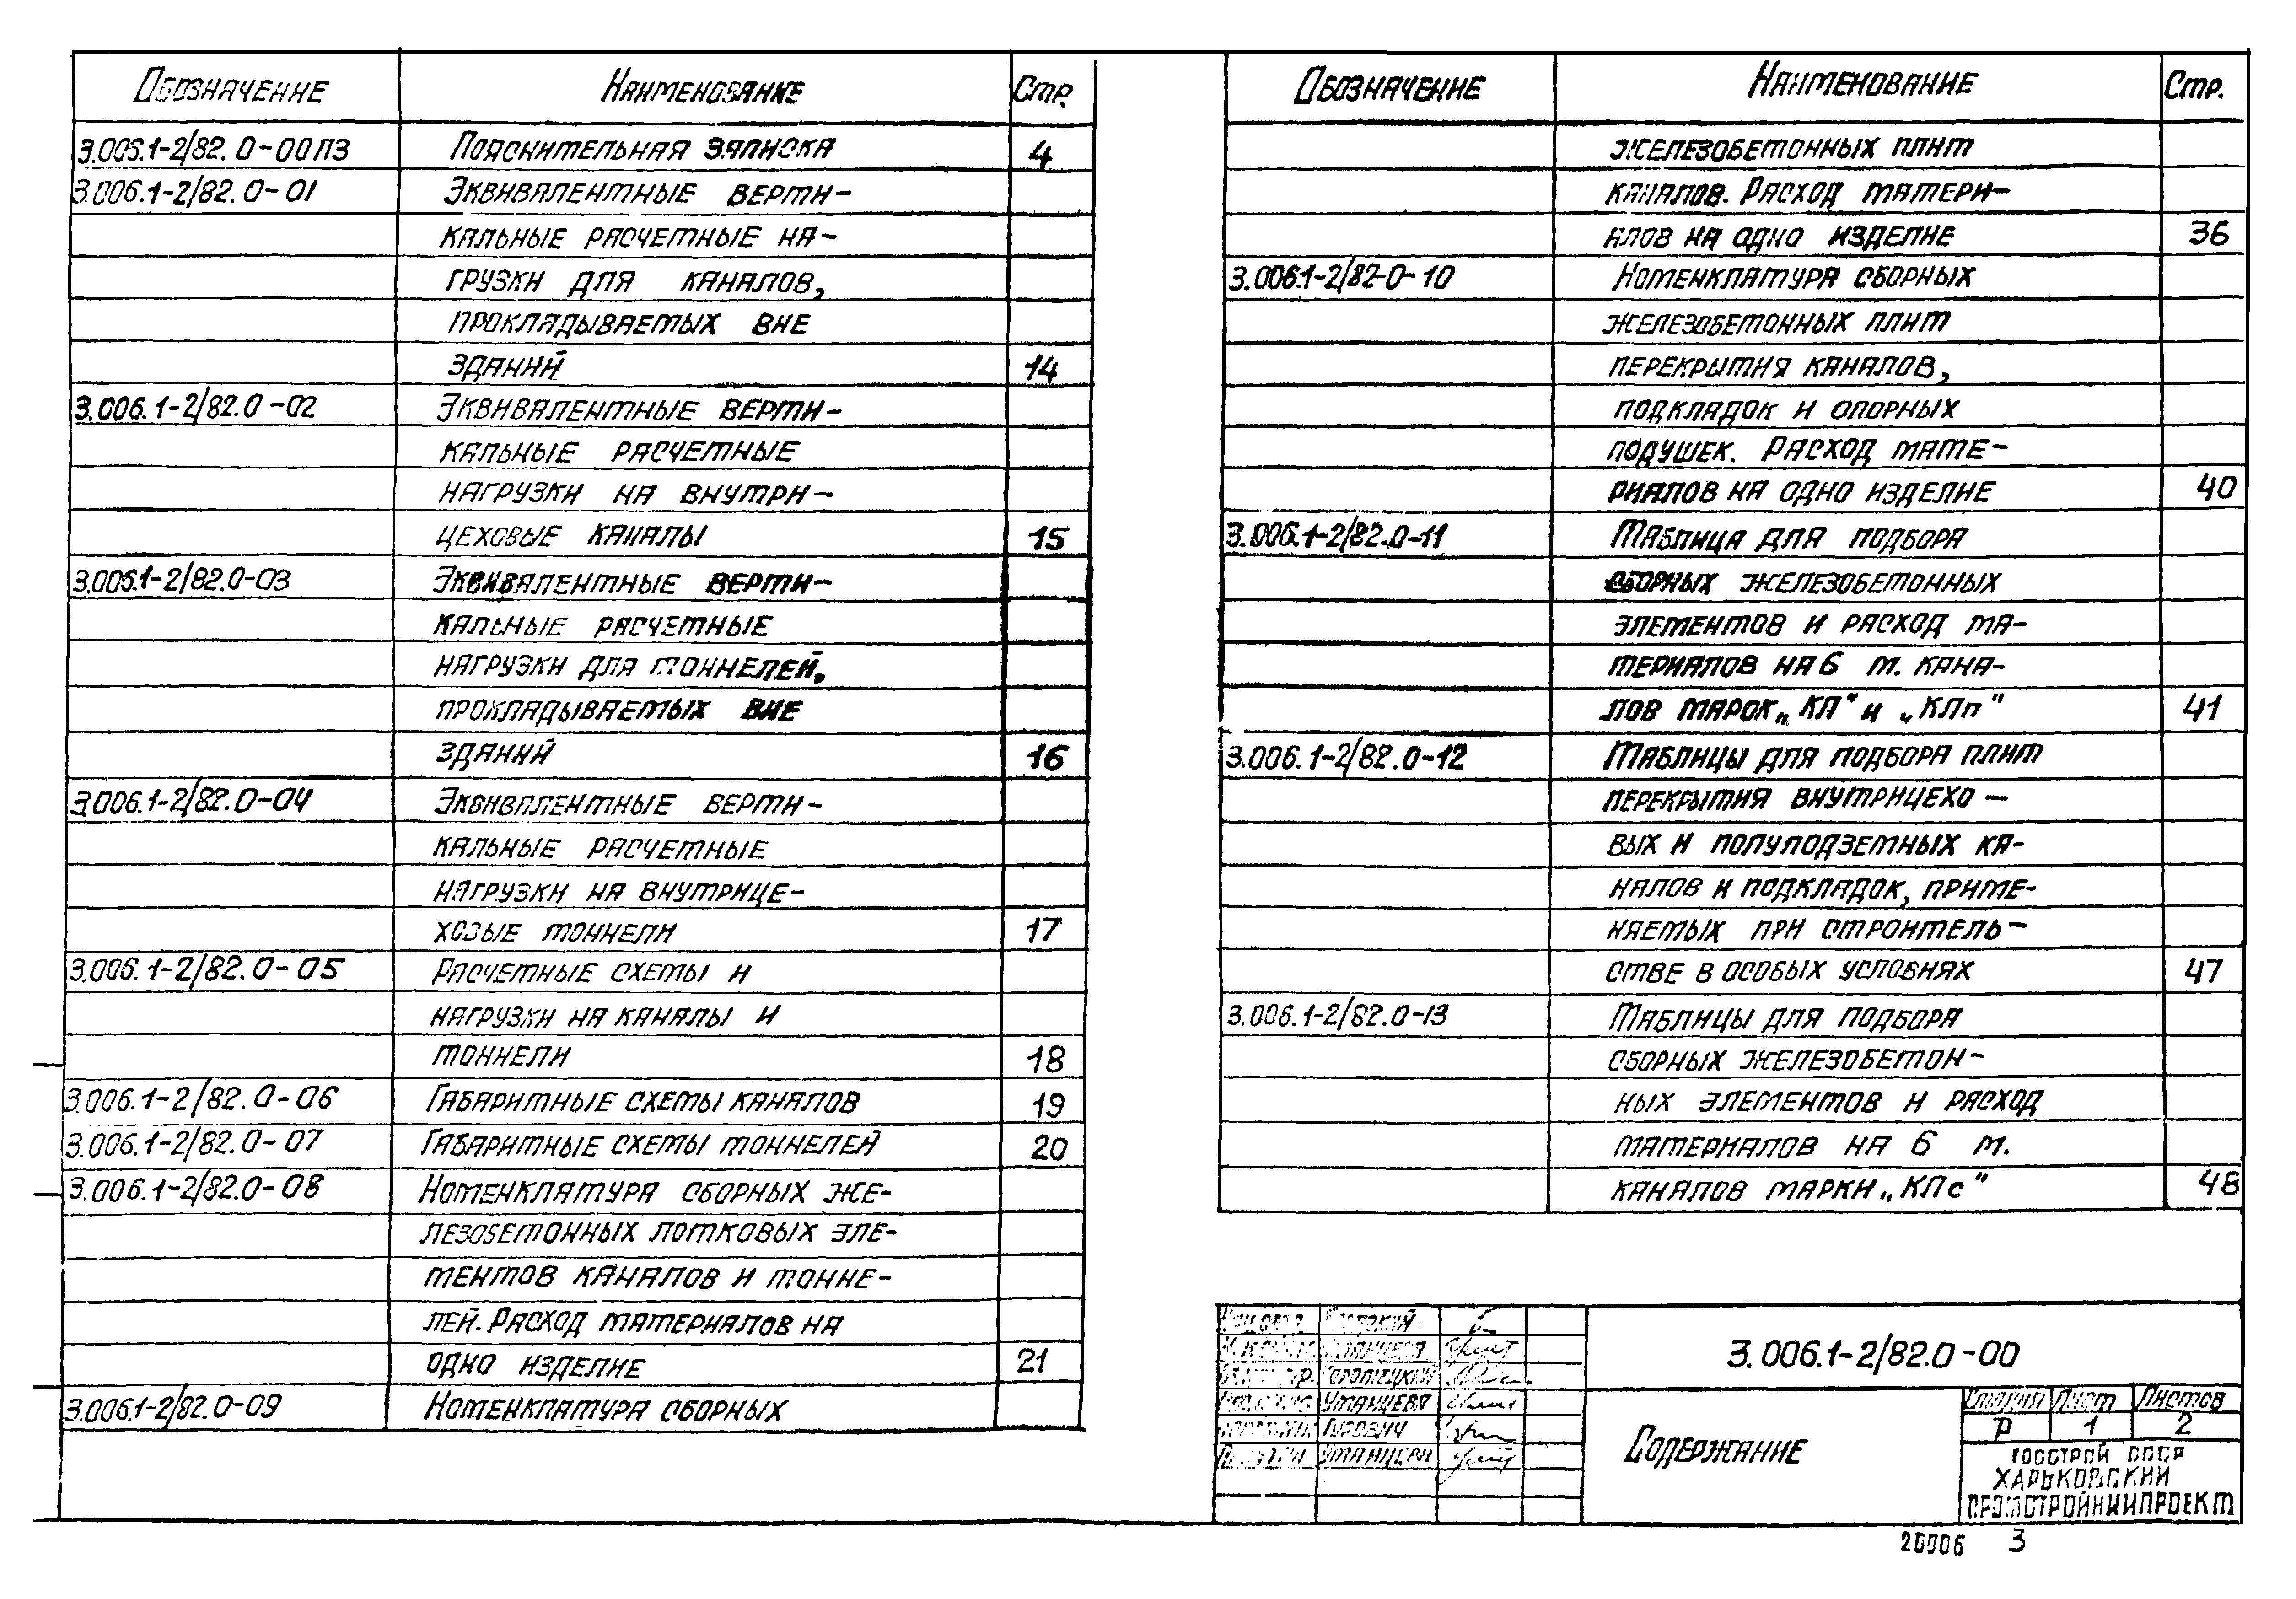 Обозначение Наименование Стр.
3.006.1-2/82.0-00ПЗ Пояснительная записка 4
3.006.1-2/82.0-01 Эквивалентные верти-
кальные расчетные на-
грузки для каналов,
прокладываемых вне
зданий 14
3.006.1-2/82.0-02 Эквивалентные верти-
кальные расчетные
нагрузки на внутри-
цеховые каналы 15
3.006.1-2/82.0-03 Эквивалентные верти-
кальные расчетные
нагрузки для тоннелей,
прокладываемых вне
зданий 16
3.006.1-2/82.0-04 Эквивалентные верти-
кальные расчетные
нагрузки на внутрице-
ховые тоннели 17
3.006.1-2/82.0-05 Расчетные схемы и
нагрузки на каналы и
тоннели 18
3.006.1-2/82.0-06 Габаритные схемы каналов 19
3.006.1-2/82.0-07 Габаритные схемы тоннелей 20
3.006.1-2/82.0-08 Номенклатура сборных же-
лезобетонных лотковых эле-
ментов каналов и тонне-
лей. Расход материалов на
одно изделие 21
3.006.1-2/82.0-09 Номенклатура сборных
Обозначение Наименование Стр.
железобетонных плит
каналов. Расход матери-
алов на одно изделие 36
3.006.1-2/82-0-10 Номенклатура сборных
железобетонных плит
перекрытия каналов,
подкладок и опорных
подушек. Расход мате-
риалов на одно изделие 40
3.006.1-2/82.0-11 Таблица для подбора
сборных железобетонных
элементов и расход ма-
териалов на 6 м. кана-
лов марок „КЛ" и „КЛп" 41
3.006.1-2/82.0-12 Таблицы для подбора плит
перекрытия внутрицехо-
вых и полуподземных ка-
налов и подкладок, приме-
няемых при строитель-
стве в особых условиях 47
3.006.1-2/82.0-13 Таблицы для подбора
сборных железобетон-
ных элементов и расход
материалов на 6 м.
каналов марки „КЛс" 48
3.006.1-2/82.0-00
Уманцева
Гурович
Содержание
Стадия Лист Листов
Р 1 2
Госстрой СССР
Харьковский
Промстройниипроект
20006 3